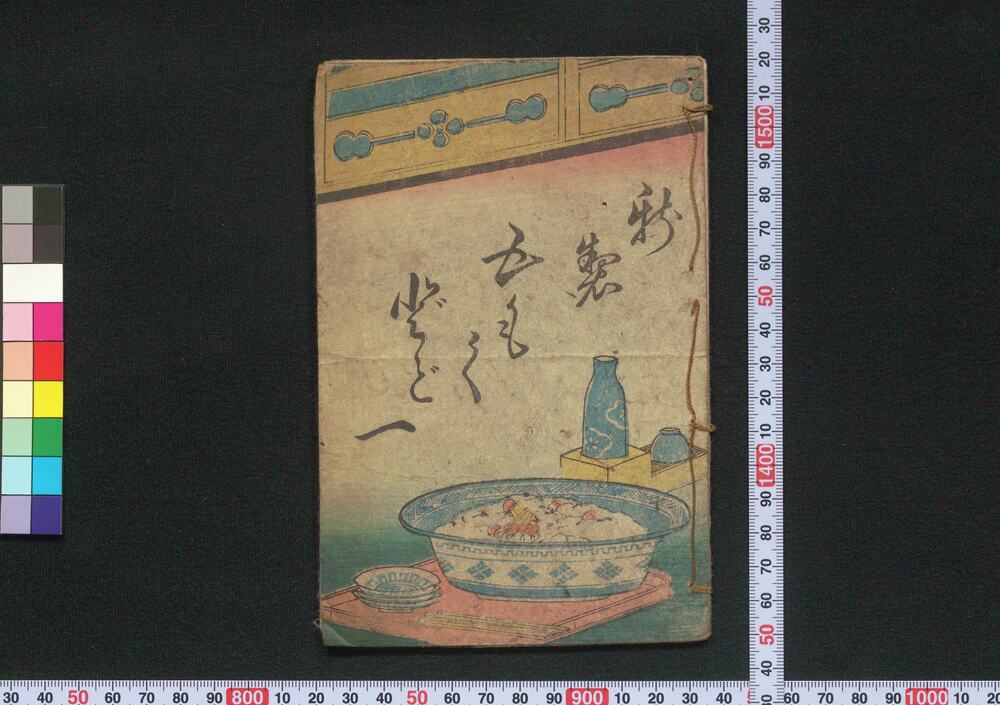 新
製
五もく
ど
一
30 20 10 1500 90 80 70 60 50 40 30 20 10 1400 90 80 70 60 50 40 30
30 40 50 60 70 80 90 800 10 20 30 40 50 60 70 80 90 900 10 20 30 40 60 70 80 90 1000 10 20